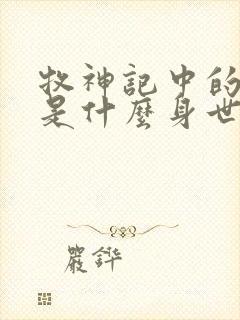 牧神記中的
是什麼身世
嚴鏵